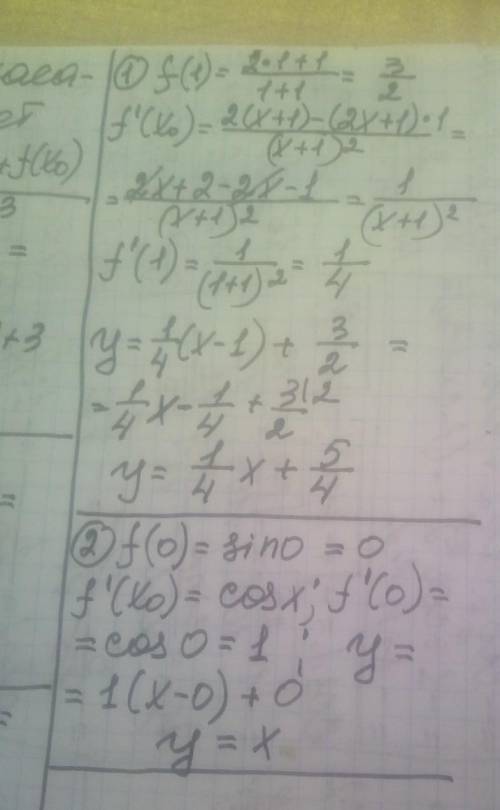 f(x₀)
3
=
+3
=
=
① f(1) = (2·1+1)/(1+1) = 3/2
f'(x₀) = (2(x+1)-(2x+1)·1)/(x+1)² =
= (2x+2-2x-1)/(x+1)² = 1/(x+1)²
f'(1) = 1/(1+1)² = 1/4
y = 1/4(x-1) + 3/2 =
= 1/4 x - 1/4 + 3\2/2
y = 1/4 x + 5/4
② f(0) = sin0 = 0
f'(x₀) = cosx; f'(0) =
= cos0 = 1 ; y =
= 1(x-0) + 0
y = x